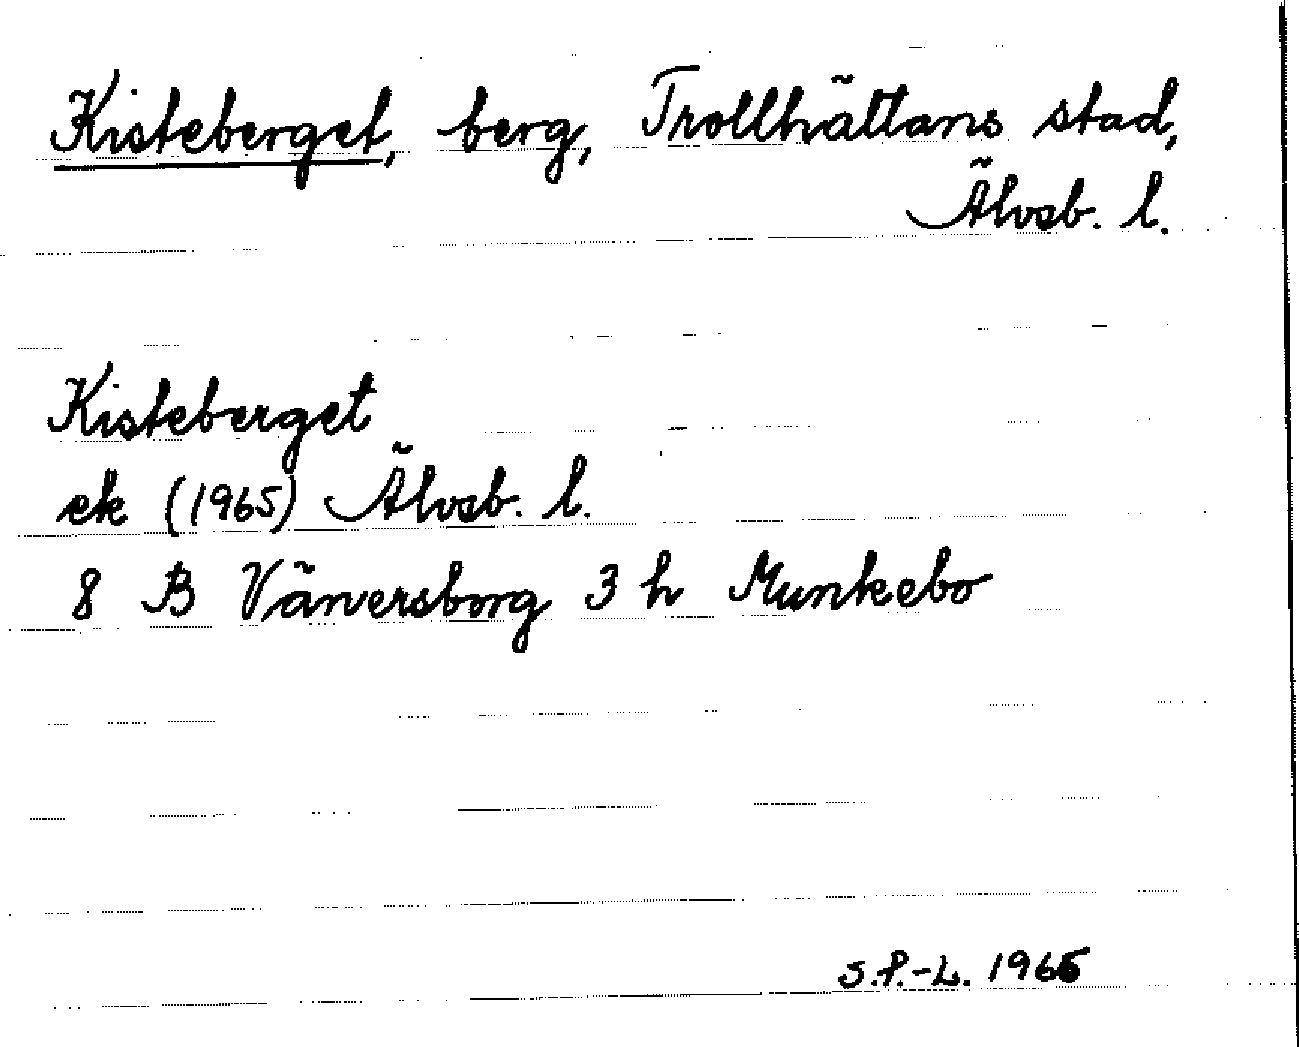 Kisteberget, berg, Trollhättans stad,
Älvsb. l.
Kisteberget
ek (1965) Älvsb. l.
8 B Vänersborg 3 h Munkebo
S.P.-L. 1966